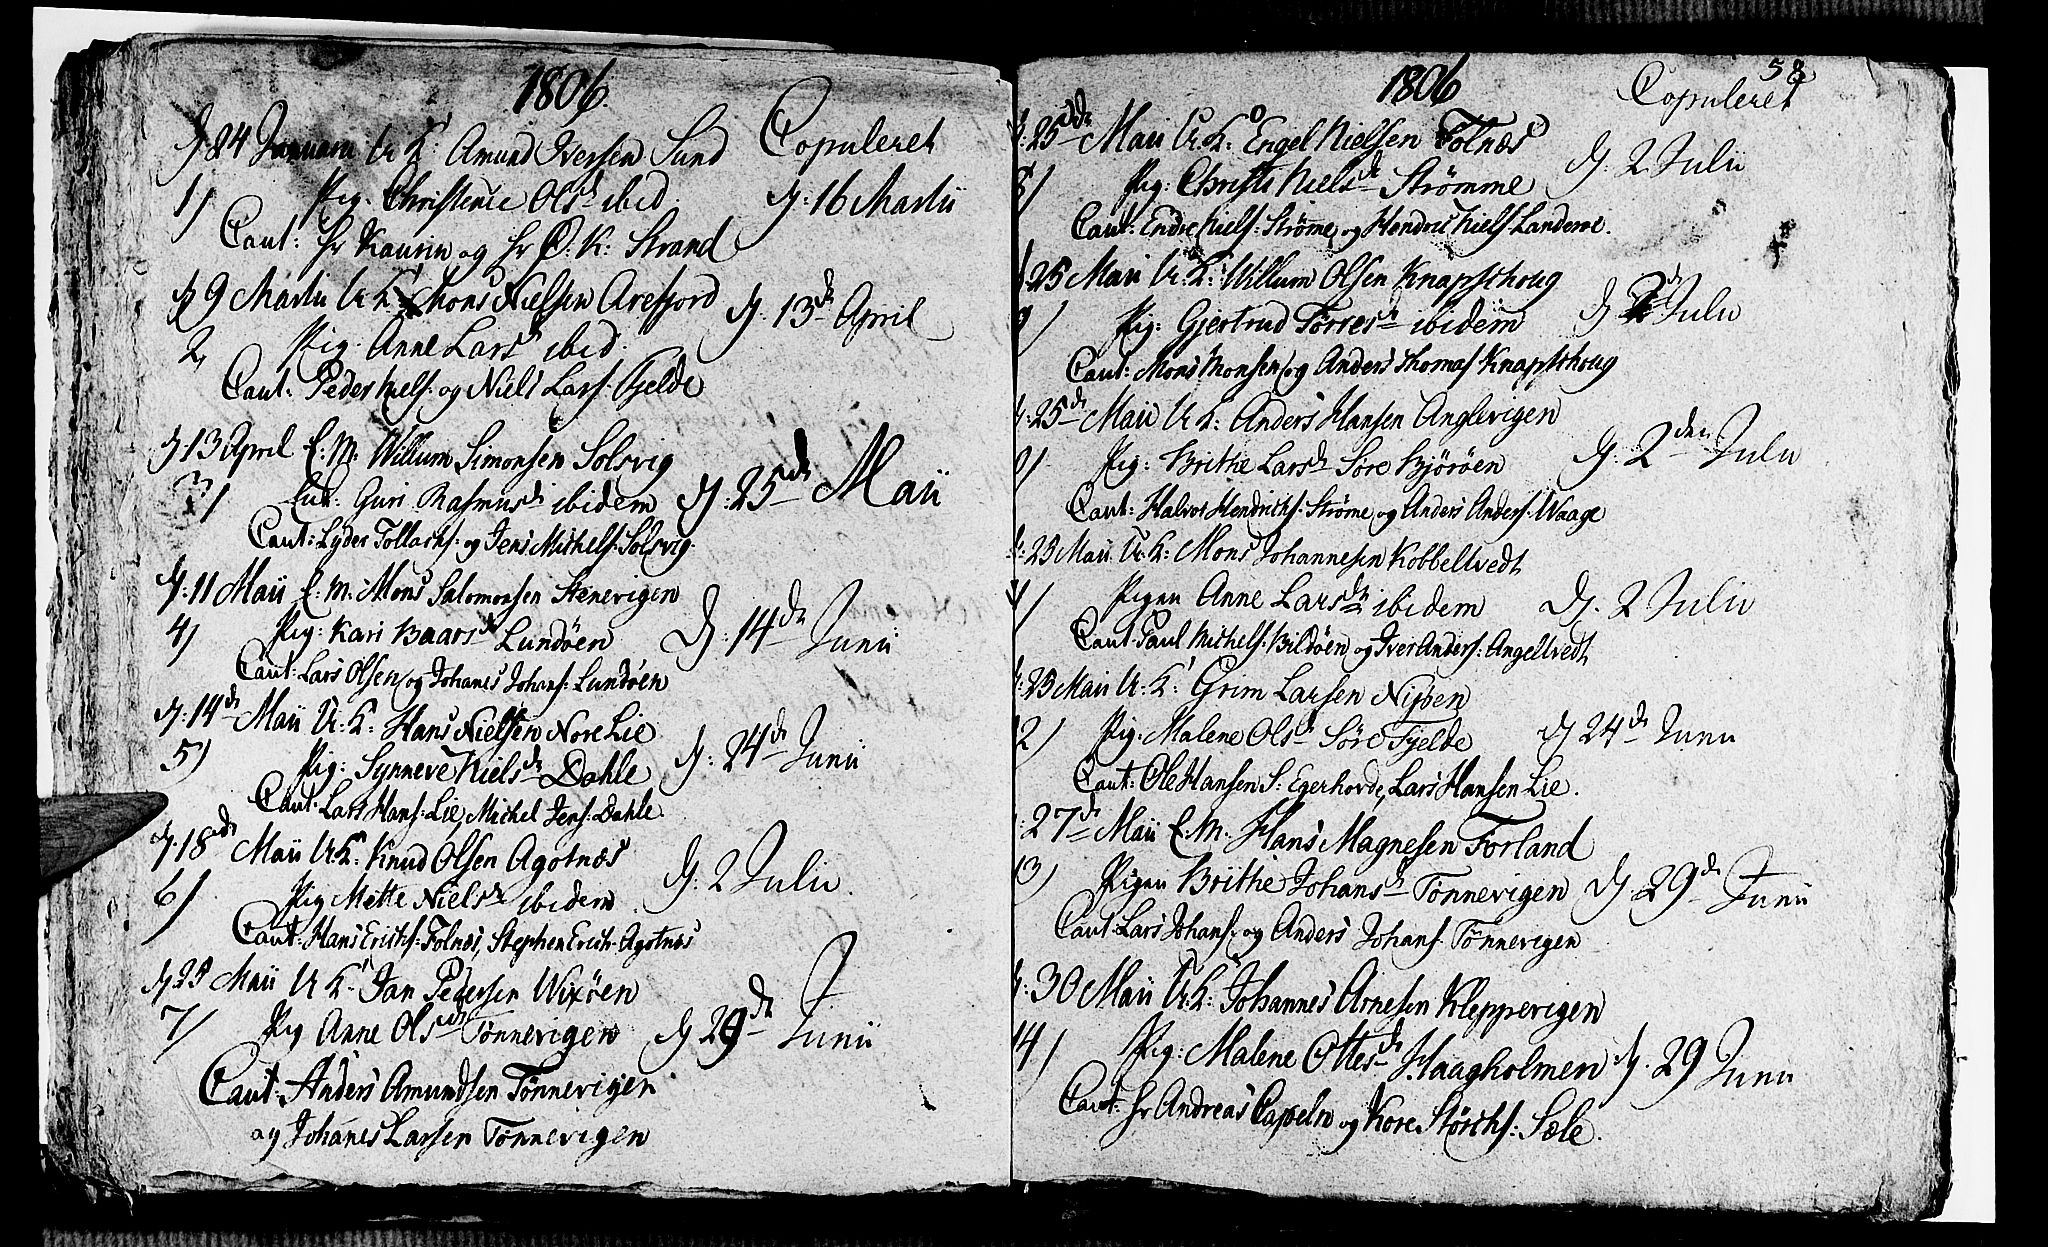 1806.
Copuleret
d. 24 Januarii U K: Amund Iversen Sund
1) Pig. Christence Olsdr ibid. d: 16 Martii
Caut: Hr Kaurin og Hr O. K: Strand
d 9 Martii U K: Mons Nielsen Arefjord d. 13de April
2, Pig. Anne Larsdr ibid.
Caut: Peder Niels: og Niels Lars: Fjelde
d. 13 April E. M. Willum Simonsen Solsvig
3) Enk: Guri Rasmusdr ibidem d: 25de Maii
Caut: Lyder Tollachs: og Jens Michels: Solsvig.
d: 11 Maii E. M: Mons Salomonsen Stenevigen
4) Pig: Kari Baarsdr Lundøen d: 14de Junii
Caut: Lars Olsen og Johanes Johans: Lundøen
d: 14de Maii U: K: Hans Nielsen Nore Lie
5) Pig: Synneve Nielsdr Dahle d: 24de Junii
Caut: Lars Hans: Lie, Michel Jens: Dahle.
d. 18de Maii U K: Knud Olsen Agotnæs
6) Pig Mette Nielsdr ibidem d: 2 Julii.
Caut: Hans Erichs: Folnæs, Stephen Erich: Agotnæs
d 25 Maii U K Jan Pedersen Wixøen
7) Pig Anne Olsdr Tønnevigen d 29de Junii
Caut. Anders Amundsen Tønnevigen
og Johanes Larsen Tønnevigen
1806
58
Copuleret
d: 25de Maii U K: Engel Nielsen Folnæs
8) Pig: Christi Nielsdr Strømme d. 2 Julii
Caut: Endre Niels: Strøme og Hendric Niels. Landeroe.
d 25 Maii U. K: Willum Olsen Knapschoug
9) Pig: Gjertrud Torresdr ibidem d 2de Julii
Caut: Mons Monsen og Anders Thomas Knapschoug
d. 25de Maii U K: Anders Hansen Anglevigen
10) Pig: Brithe Larsdr Søre Bjørøen d: 2den Julii
Caut: Halvor Hendrichs: Strøme og Anders Anders: Waage
d: 25 Maii U. K: Mons Johannesen Kobbeltvedt
11) Pigen Anne Larsdr ibidem d. 2 Julii
Caut: Paul Michels: Bildøen og Iver Anders: Angeltvedt
d: 25 Maii U: K: Grim Larsen Nijøen
12) Pig: Malene Olsdr Søre Fjelde d 24de Junii
Caut: Ole Hansen S: Egerhovde, Lars Hansen Lie.
d: 27de Maii E. M. Hans Magnesen Forland
13) Pigen Brithe Johansdr Tønnevigen d. 29de Junii
Caut: Lars Johans: og Anders Johans: Tønnevigen
d: 30 Maii U: K: Johannes Arnesen Kleppevigen
14) Pig: Malene Ottesdr Haagholmen d. 29 Junii
Caut: Hr Andreas Capeln og Kore Størchs: Sæle.